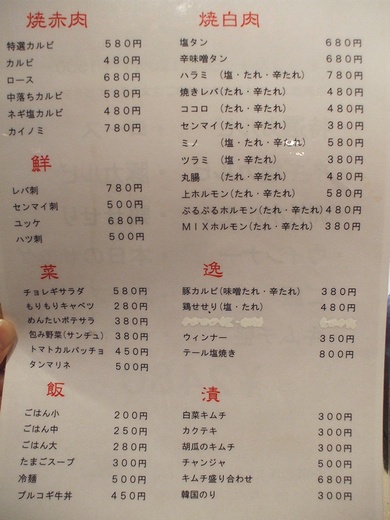 焼赤肉
特選カルビ 580円
カルビ 480円
ロース 680円
中落ちカルビ 580円
ネギ塩カルビ 480円
カイノミ 780円
鮮
レバ刺 780円
センマイ刺 500円
ユッケ 680円
ハツ刺 500円
菜
チョレギサラダ 580円
もりもりキャベツ 280円
めんたいポテサラ 380円
包み野菜(サンチュ) 380円
トマトカルパッチョ 450円
タンマリネ 500円
飯
ごはん小 200円
ごはん中 250円
ごはん大 280円
たまごスープ 300円
冷麺 500円
プルコギ牛丼 450円
焼白肉
塩タン 680円
辛味噌タン 680円
ハラミ (塩・たれ・辛たれ) 780円
焼きレバ(たれ・辛たれ) 480円
ココロ (たれ・辛たれ) 480円
センマイ(たれ・辛たれ) 380円
ミノ (塩・たれ・辛たれ) 580円
ツラミ (塩・辛たれ) 380円
丸腸 (たれ・辛たれ) 480円
上ホルモン(たれ・辛たれ) 580円
ぷるぷるホルモン(たれ・辛たれ) 480円
MIXホルモン(たれ・辛たれ) 380円
逸
豚カルビ(味噌たれ・辛たれ) 380円
鶏せせり(塩・たれ) 480円
ウィンナー 350円
テール塩焼き 800円
漬
白菜キムチ 300円
カクテキ 300円
胡瓜のキムチ 300円
チャンジャ 500円
キムチ盛り合わせ 680円
韓国のり 300円